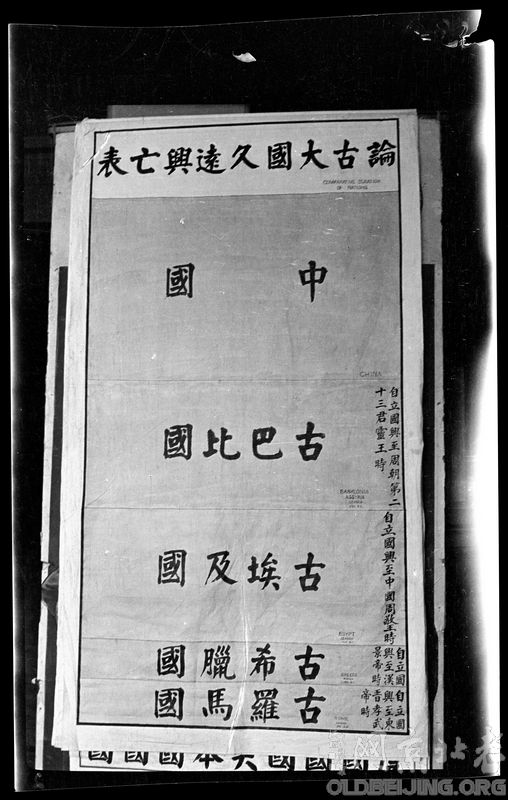 論古大國久遠興亡表
COMPARATIVE DURATION
OF NATIONS
中國
CHINA
古巴比國
自立國興至周朝第二
十三君靈王時
BABYLONIA
ASSYRIA
古埃及國
自立國興至中國周敬王時
EGYPT
古希臘國
自立國
興至漢
景帝時
GREECE
古羅馬國
自立國
興至東
晉孝武
帝時
ROME
老北京網
OLDBEIJING.ORG